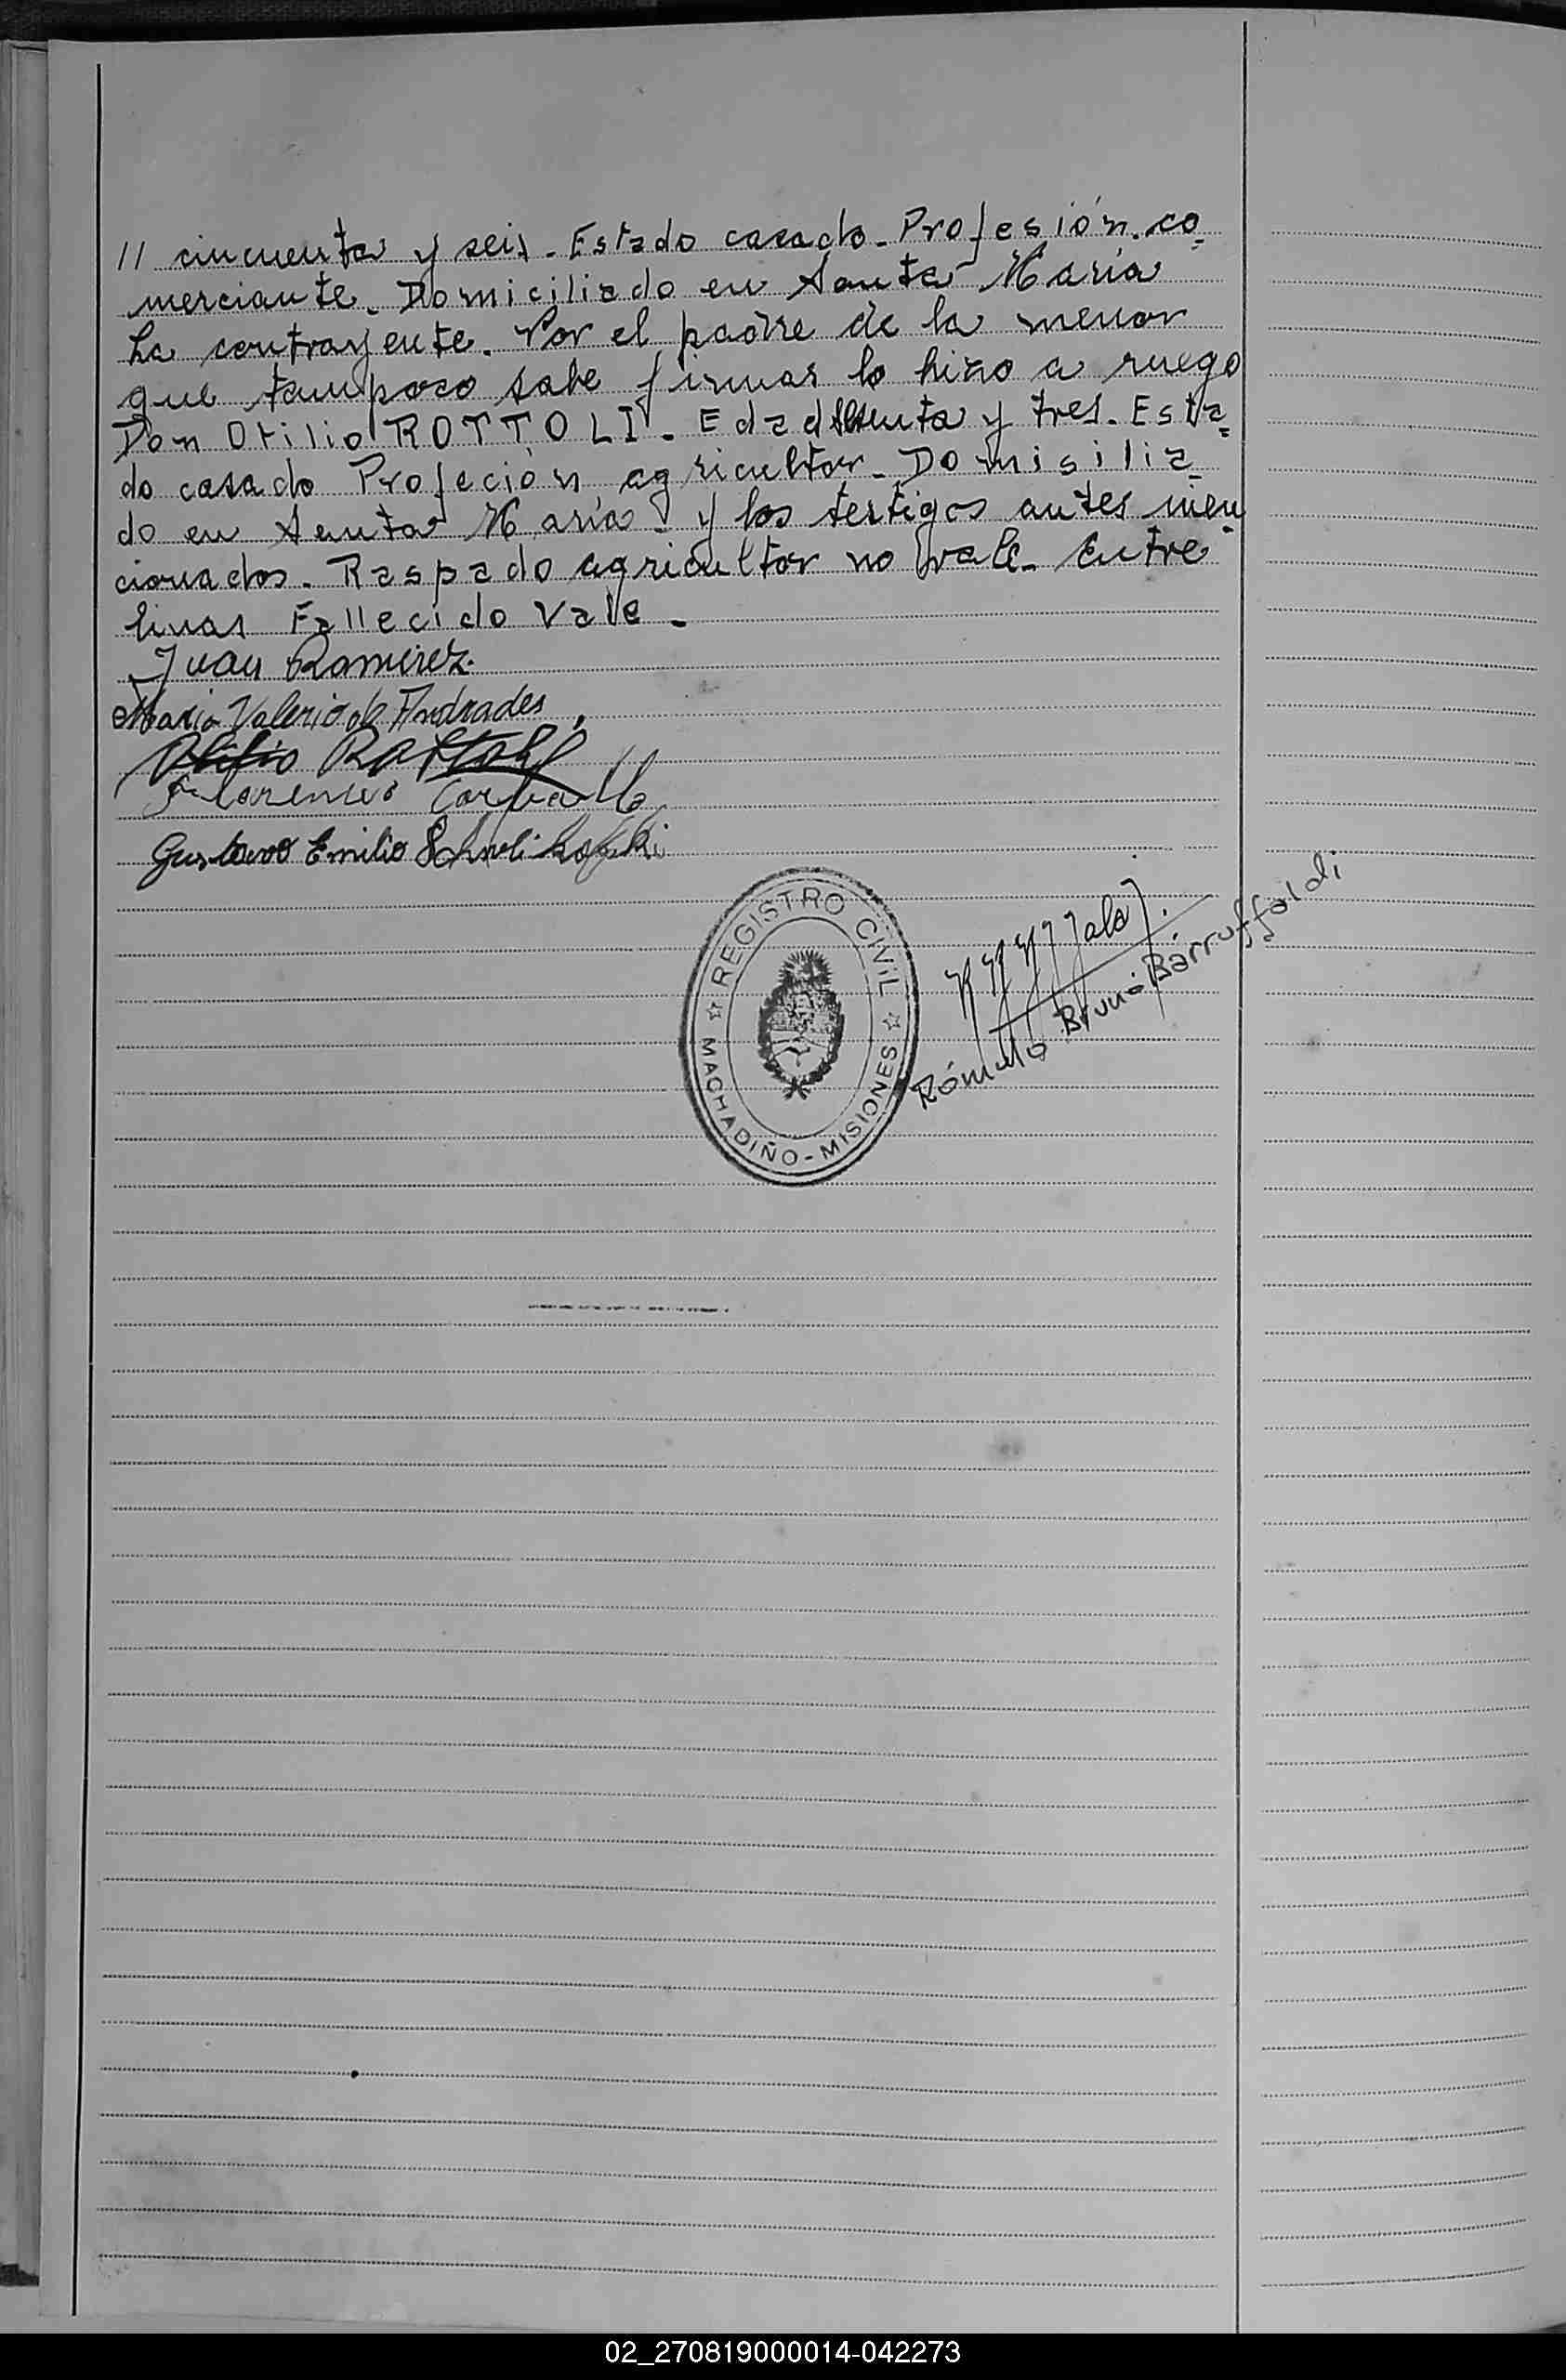 // cincuenta y seis. Estado casado. Profesión. co_
merciante. Domiciliado en Santa María
La contrayente. Por el padre de la menor
que tampoco sabe firmar lo hizo a ruego
Don Otilio ROTTOLI. Edad y tres. Esta_
do casado Profeción agricultor. Domisilia_
do en Santa María. y los testigos antes men_
cionados. Raspado agricultor no vale. Entre_
linas Fallecido Vale.
Juan Ramirez.
Maria Valerio de Andrades,
Otilio Rottoli
Florencio Carballo
Gustavo Emilio
REGISTRO CIVIL
MACHADIÑO - MISIONES
Rómulo Bruno Barruffaldi
02_270819000014-042273